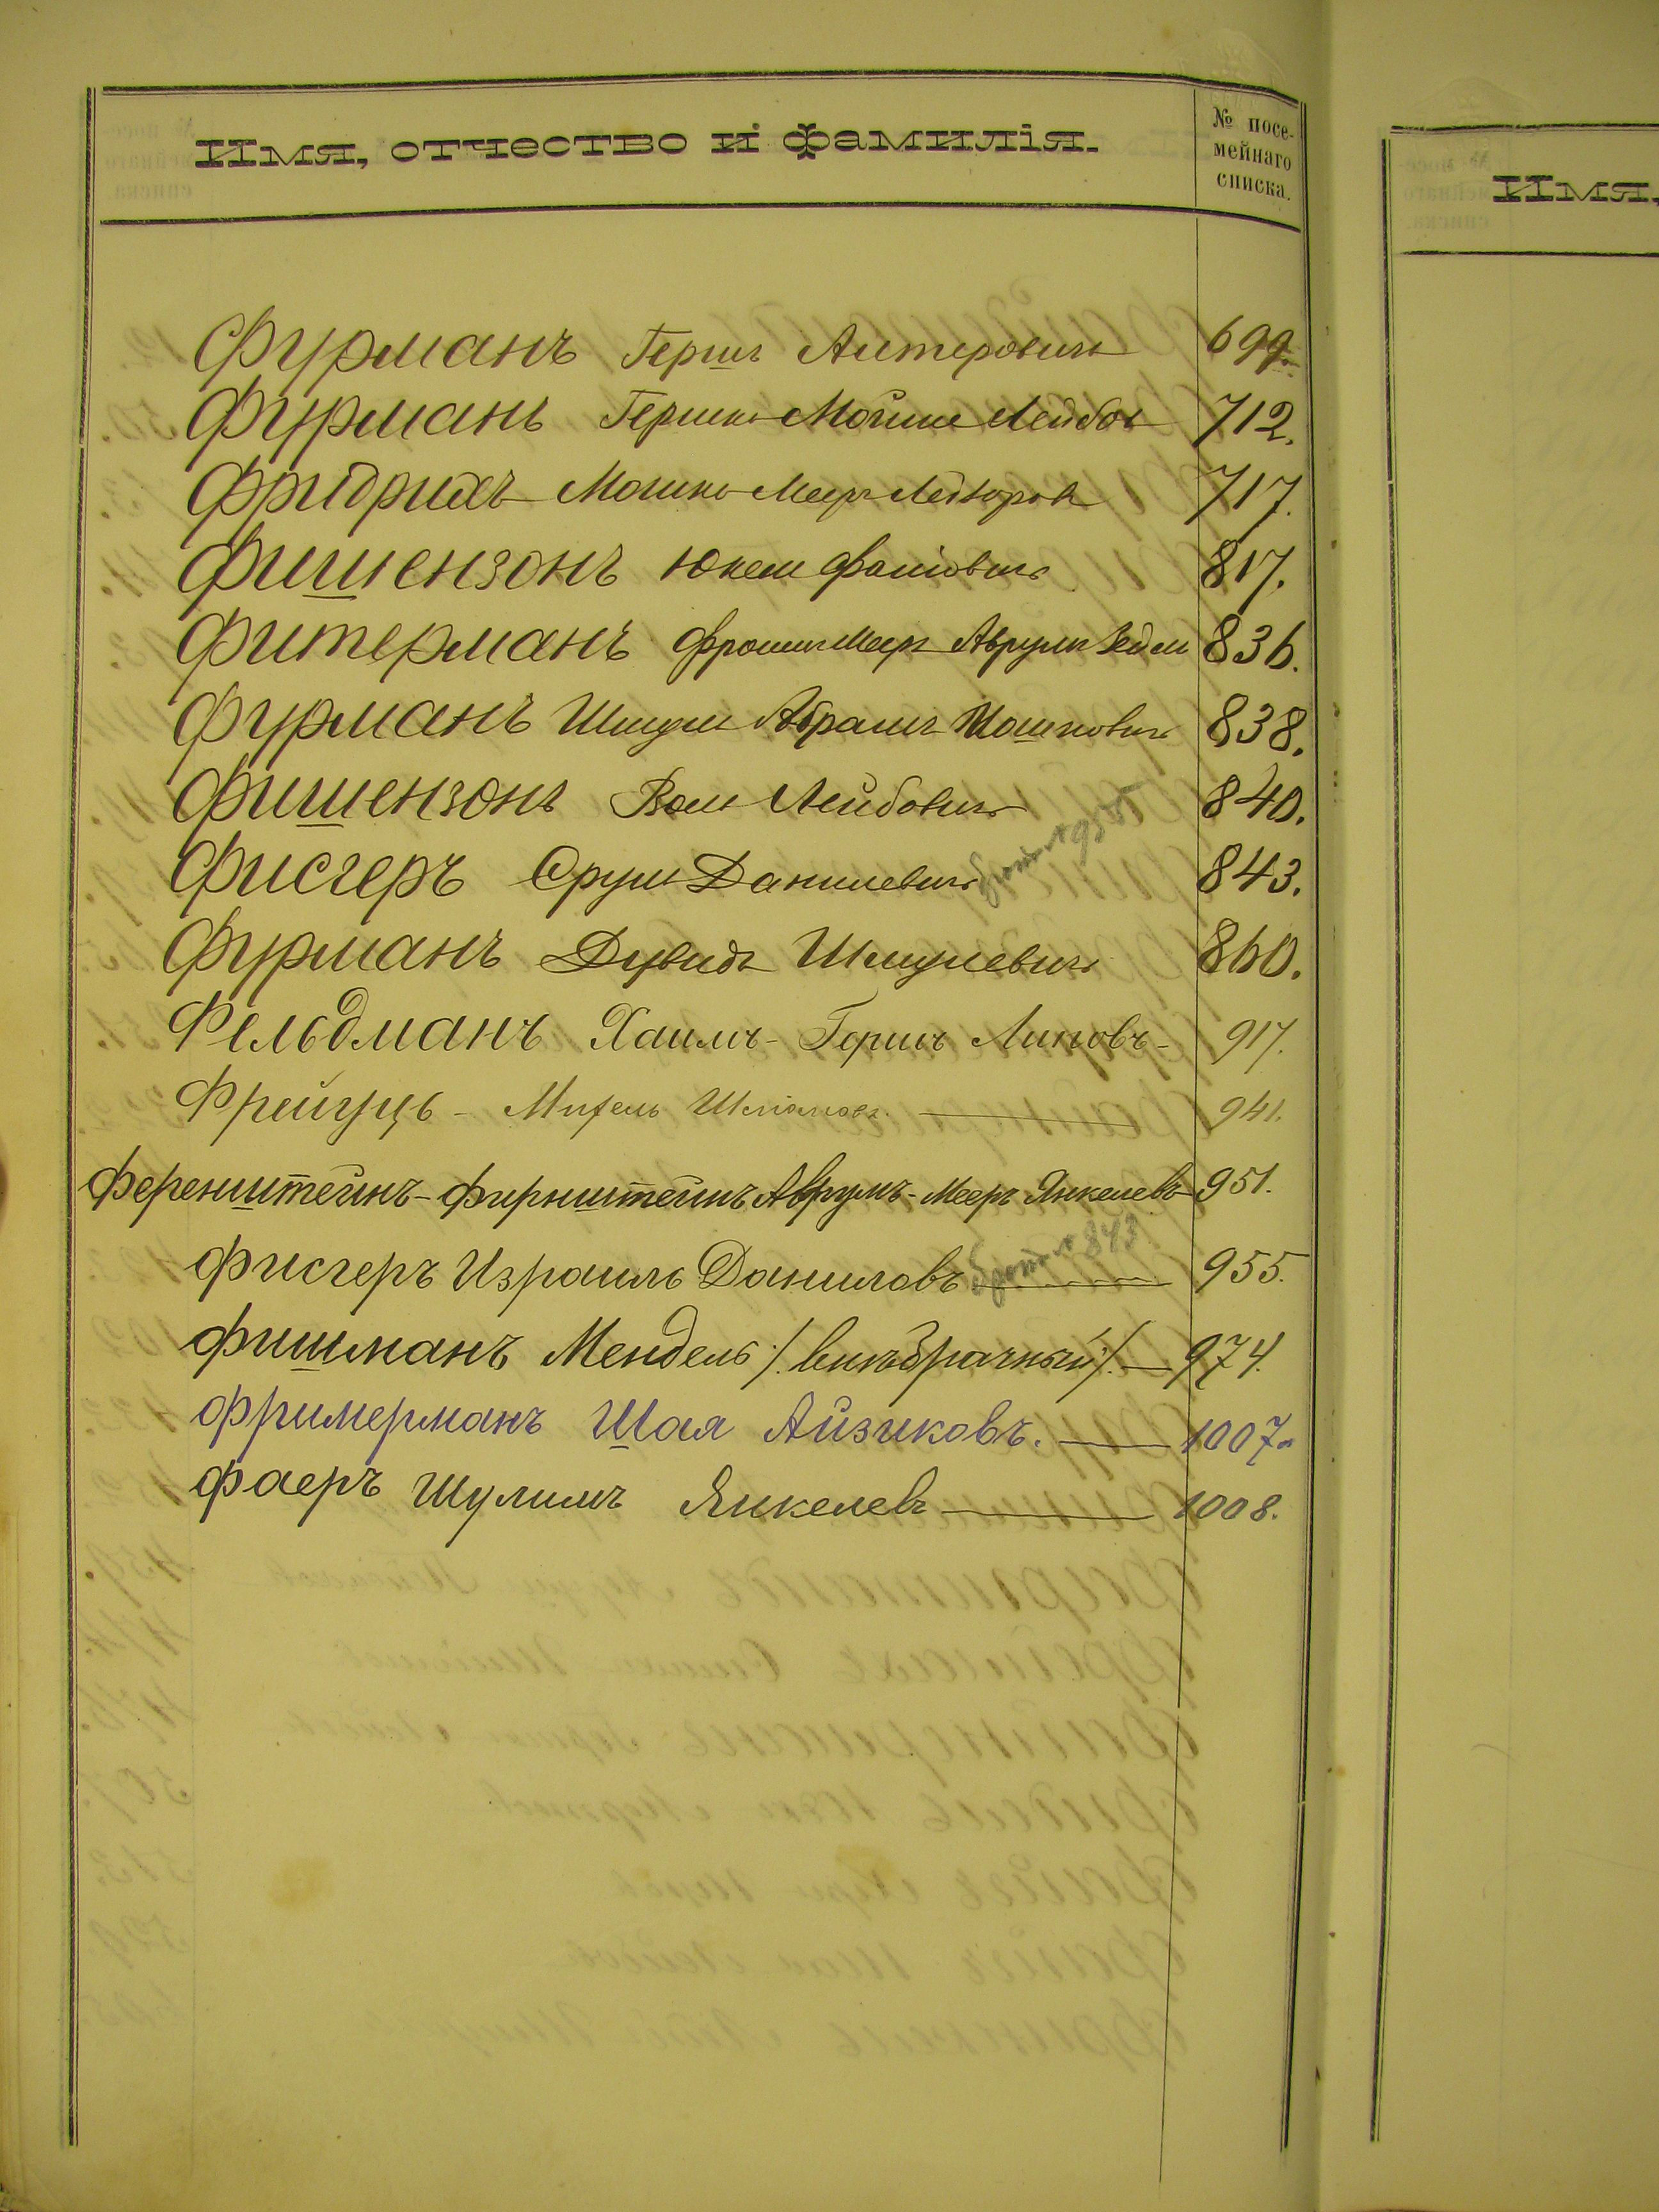 Имя, отчество и фамилія.
№ посе-
мейнаго
списка.
Фурманъ Гершъ Алтеровичъ 699.
Фурманъ Гершко-Мойше Лейбов 712.
Фридрихъ Мошко-Меер 717.
Фишензонъ Юкель 817.
Фитерманъ Фроим Меер Аврум Зейлик 836.
Фурманъ Шмуль Абрамъ Мошковичъ 838.
Фишензонъ Волъ Лейбовичъ 840.
Фисгеръ Сруль Данилевичъ братъ № 955 843.
Фурманъ Дувидъ Шмулевичъ 860.
Фельдманъ Хаимъ-Гершъ Липовъ- 917.
Фрейгуць - Михель 941.
Ференштейнъ-Фирнштейнъ Аврумъ-Мееръ Янкелевъ 951.
Фисгеръ Израиль Даниловъ братъ № 843 955.
Фишманъ Мендель /.внѣбрачный/. — 974.
Фримерманъ Шая Айзиковъ. — 1007.
Фаеръ Шулимъ Янкелевъ — 1008.
Имя,